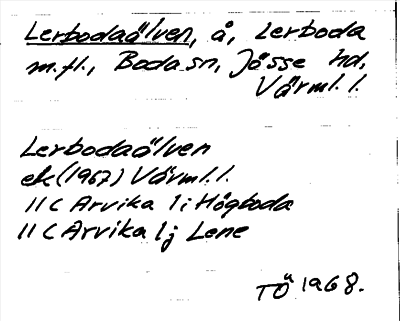 Lerbodaälven, å, Lerboda
m.fl., Boda sn, Jösse hd,
Värml. l.
Lerbodaälven
ek (1967) Värml. l.
11 C Arvika 1 i Högboda
11 C Arvika 1 j Lene
TÖ 1968.